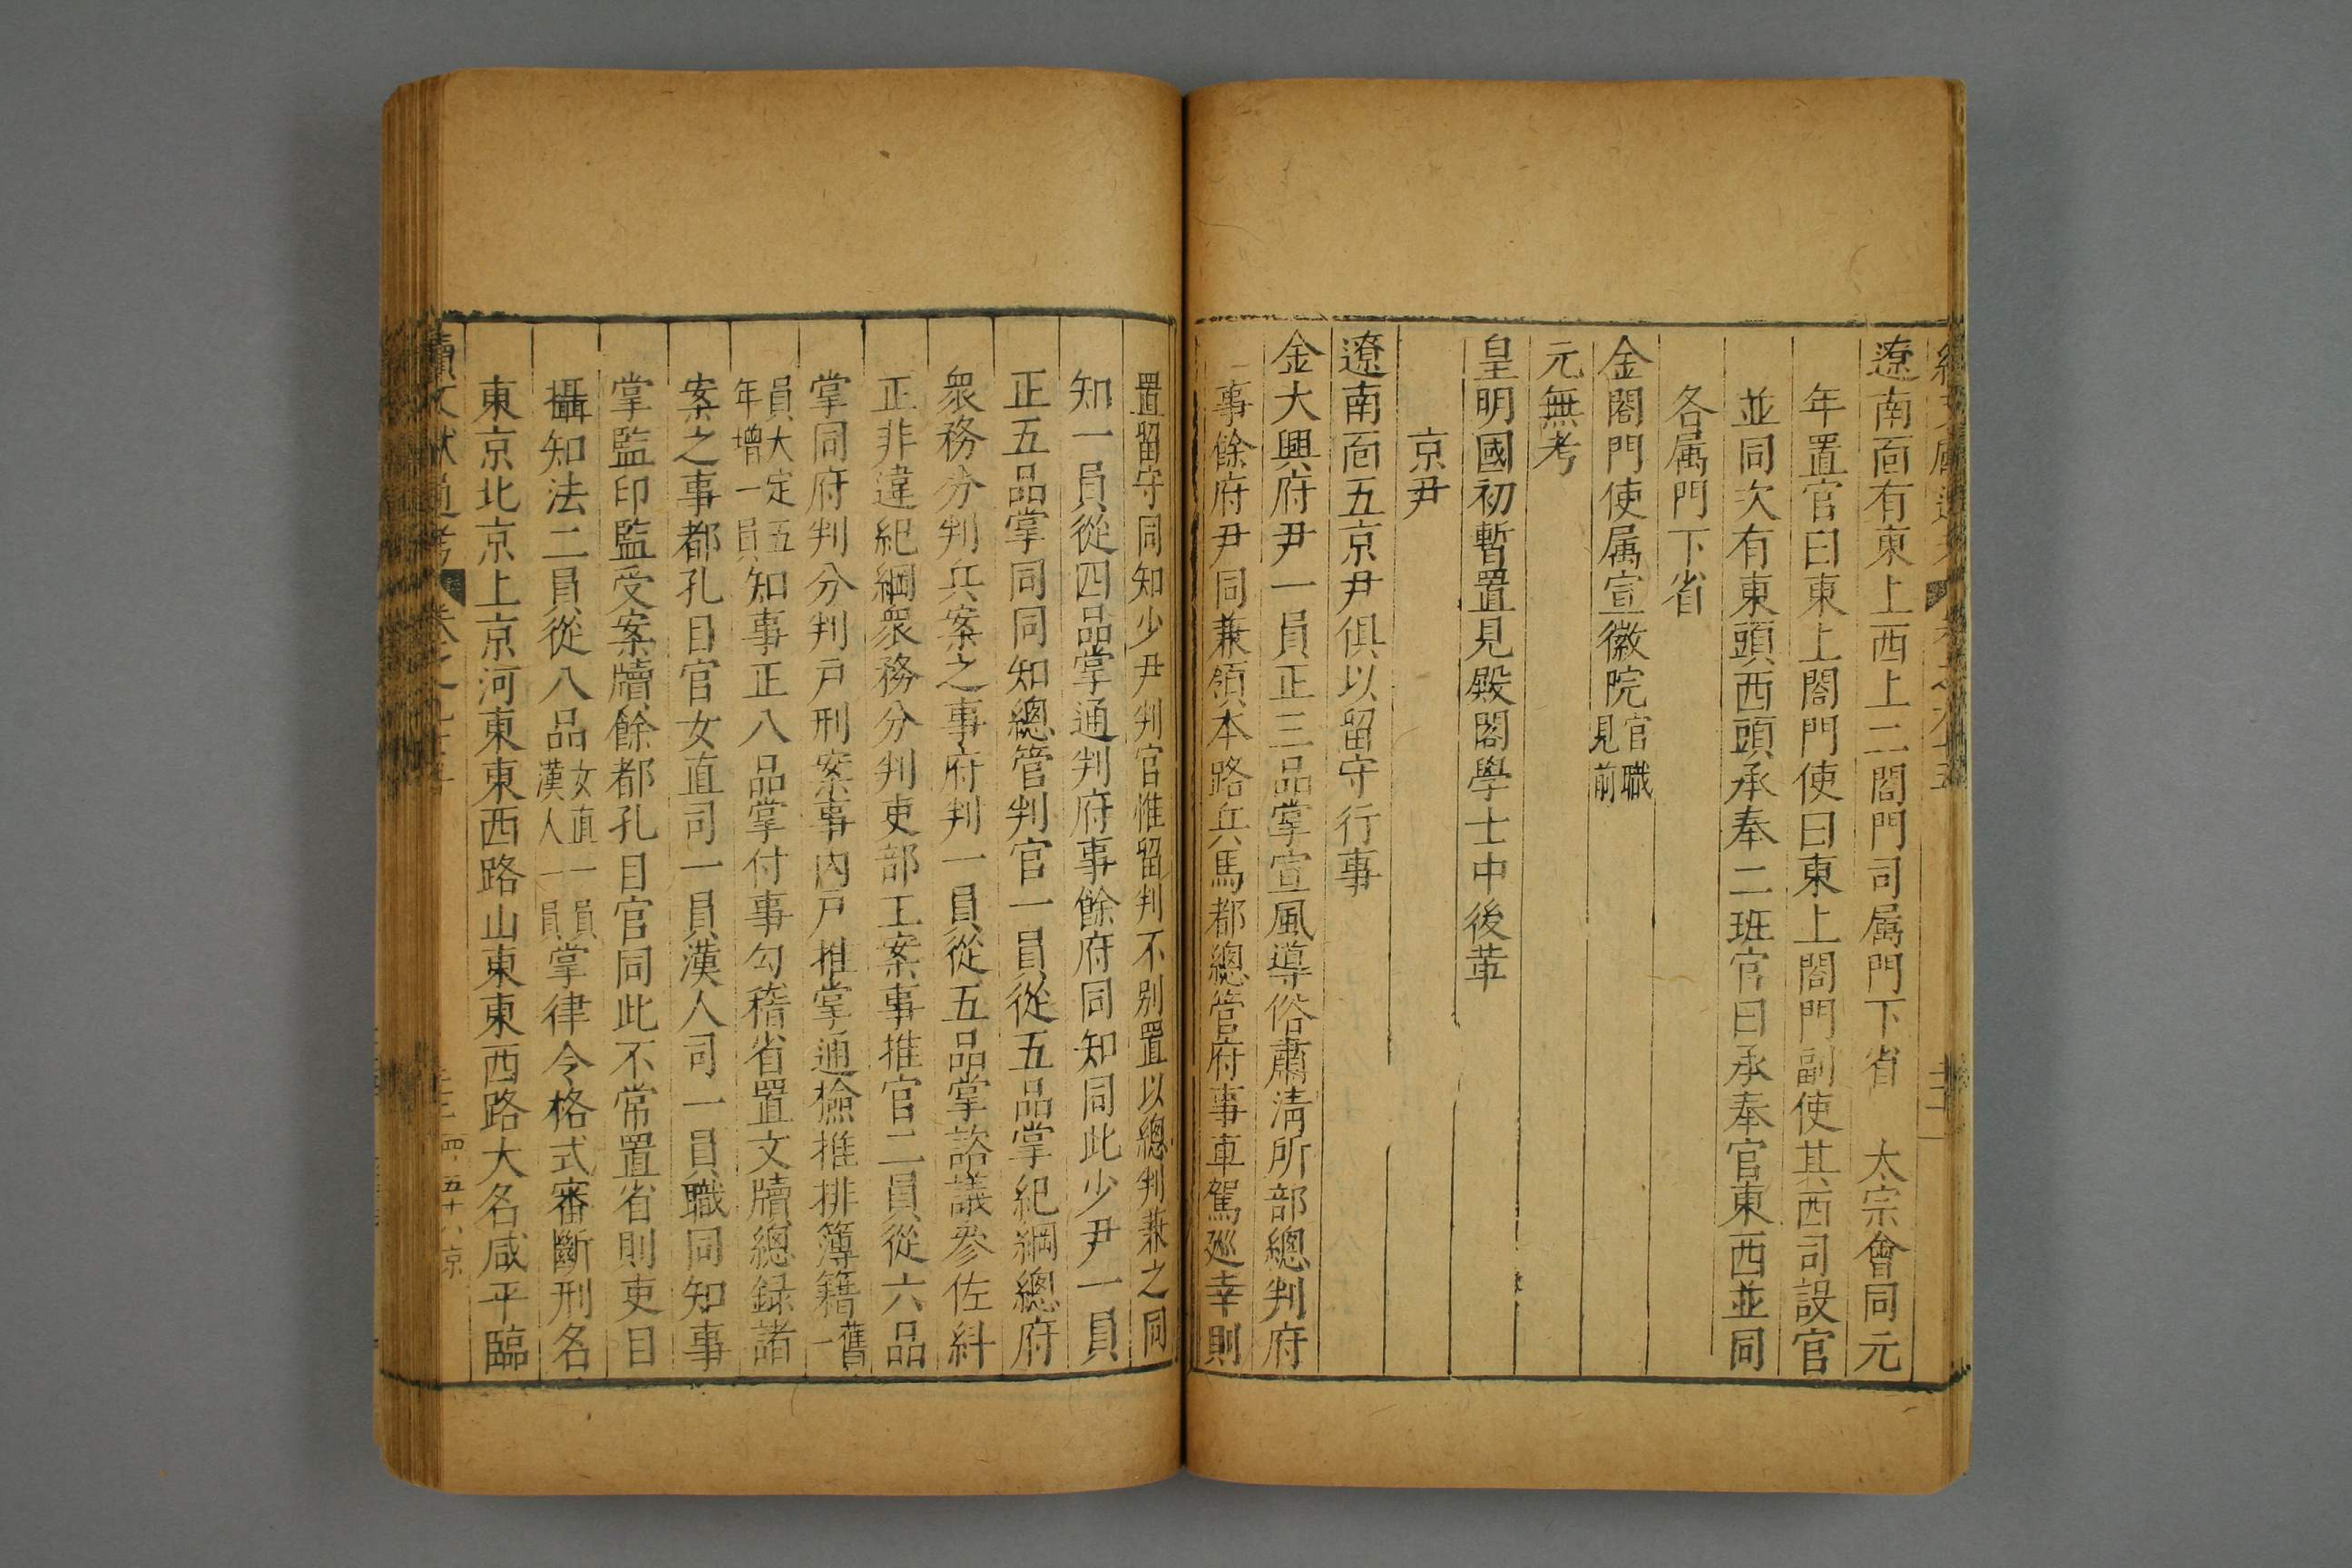 遼南面有東上西上二閤門司属門下省　太宗會同元
年置官曰東上閤門使曰東上閤門副使其西司設官
並同次有東頭西頭承奉二班官曰承奉官東西並同
各属門下省
金閤門使属宣徽院官職見前
元無考
皇明國初暫置見殿閣學士中後革
京尹
遼南面五京尹俱以留守行事
金大興府尹一員正三品掌宣風導俗肅清所部總判府
事餘府尹同兼領本路兵馬都總管府事車駕巡幸則
置留守同知少尹判官惟留判不別置以總判兼之同
知一員從四品掌通判府事餘府同知同此少尹一員
正五品掌同同知總管判官一員從五品掌紀綱總府
衆務分判兵案之事府判一員從五品掌諮議參佐糾
正非違紀綱衆務分判吏部工案事推官二員從六品
掌同府判分判戶刑案事內戶推掌通檢推排簿籍舊一
員大定五年增一員知事正八品掌付事勾稽省置文牘總録諸
案之事都孔目官女直司一員漢人司一員職同知事
掌監印監受案牘餘都孔目官同此不常置省則吏目
攝知法二員從八品女直一員漢人一員掌律令格式審斷刑名
東京北京上京河東東西路山東東西路大名咸平臨
續文獻通考　卷之九十五
四五十八　京